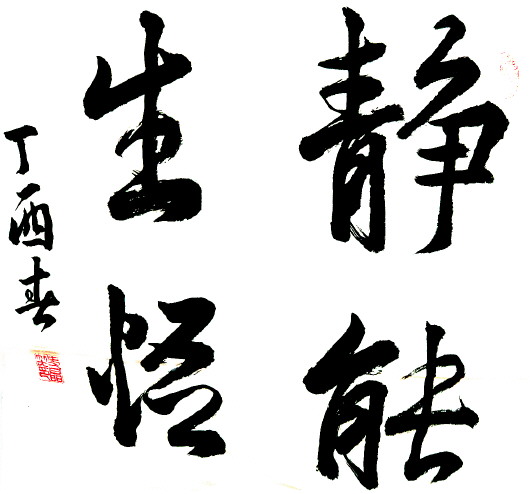 静能
生悟
丁酉春